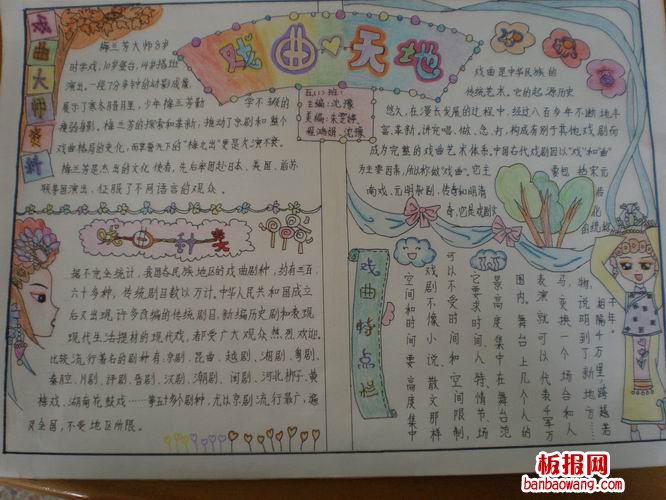 戏曲大师赛
戏曲♥天地
五(1)班:
主编:沈豫
美编:朱雯婷
程鸿娟、沈豫
梅兰芳大师8岁
时学戏,10岁登台,14岁搭班
演出。一段7分钟的对影成篇,
展示了寒冬腊月里,少年梅兰芳勤学不缀的
瘦弱身影。梅兰芳的探索和革新,推动了京剧和整个
戏曲格局的变化,而享誉天下的"梅兰出"更是久演不衰。
梅兰芳是杰出的文化使者,先后率团赴日本、美国、前苏
联等国演出,征服了不同语言的观众。
戏曲是中华民族的
传统艺术,它的起源历史
悠久,在漫长发展的过程中,经过八百多年不断地丰
富、革新,讲究唱、做、念、打,构成有别于其他戏剧而
成为完整的戏曲艺术体系,中国古代戏剧因以"戏"和"曲"
为主要因素,所以称做"戏曲"。它主要包括宋元
南戏、元明杂剧、传奇和明清
传奇,它是戏剧
戏曲种类
据不完全统计,我国各民族地区的戏曲剧种,约有三百
六十多种,传统剧目数以万计。中华人民共和国成立
后又出现许多改编的传统剧目,新编历史剧和表现
现代生活题材的现代戏,都受广大观众热烈欢迎。
比较流行著名的剧种有:京剧、昆曲、越剧、湘剧、粤剧、
秦腔、川剧、评剧、晋剧、汉剧、潮剧、闽剧、河北梆子、黄
梅戏、湖南花鼓戏……等五十多个剧种,尤以京剧流行最广,遍
及全国,不受地区所限。
戏曲特点栏
空间和时间要高度集中
戏剧不像小说、散文那样
可以不受时间和空间限制,
它要求时间、人物、情节、场
景高度集中在舞台范
围内。舞台上几个人的
表演就可以代表千军万
马,变换一个场合和人
物,说明到了新地方……
相隔千万里,跨越若
干年。
板报网
banbaowang.com